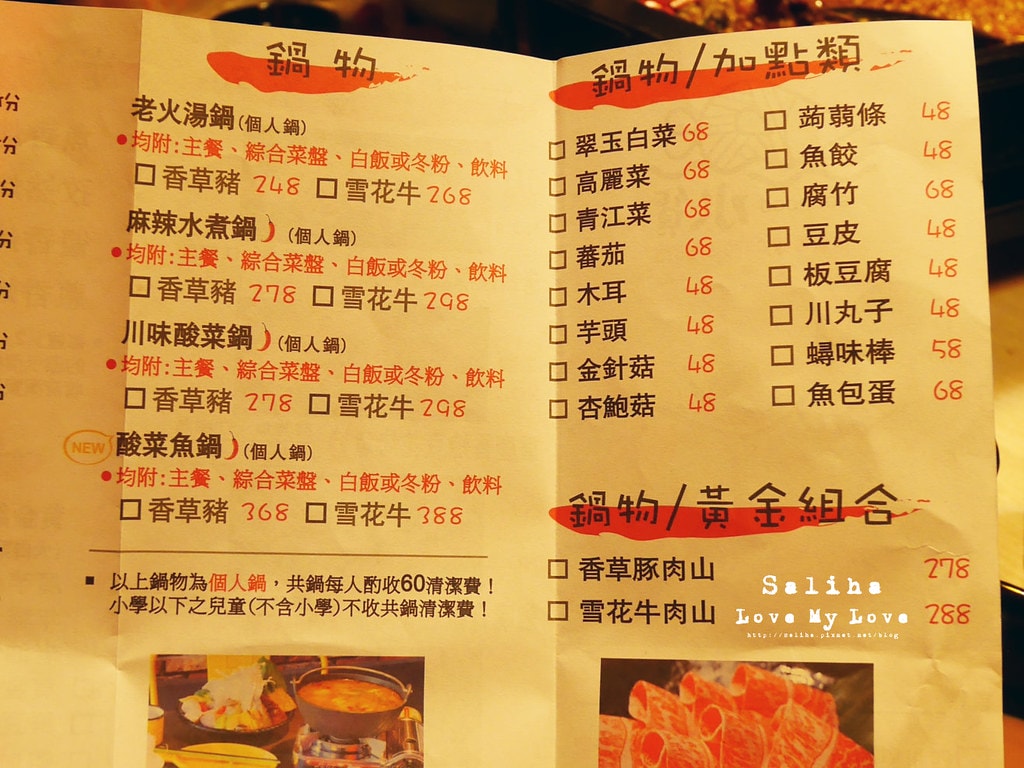 鍋物
老火湯鍋(個人鍋)
●均附:主餐、綜合菜盤、白飯或冬粉、飲料
□香草豬 248 □雪花牛 268
麻辣水煮鍋 (個人鍋)
●均附:主餐、綜合菜盤、白飯或冬粉、飲料
□香草豬 278 □雪花牛 298
川味酸菜鍋 (個人鍋)
●均附:主餐、綜合菜盤、白飯或冬粉、飲料
□香草豬 278 □雪花牛 298
NEW 酸菜魚鍋 (個人鍋)
●均附:主餐、綜合菜盤、白飯或冬粉、飲料
□香草豬 368 □雪花牛 388
■ 以上鍋物為個人鍋，共鍋每人酌收60清潔費！
小學以下之兒童(不含小學)不收共鍋清潔費！
鍋物/加點類
□ 翠玉白菜 68
□ 高麗菜 68
□ 青江菜 68
□ 蕃茄 68
□ 木耳 48
□ 芋頭 48
□ 金針菇 48
□ 杏鮑菇 48
□ 蒟蒻條 48
□ 魚餃 48
□ 腐竹 68
□ 豆皮 48
□ 板豆腐 48
□ 川丸子 48
□ 蟳味棒 58
□ 魚包蛋 68
鍋物/黃金組合
□ 香草豚肉山 278
□ 雪花牛肉山 288
Saliha
Love My Love
http://saliha.pixnet.net/blog
份
份
份
份
份
份
份